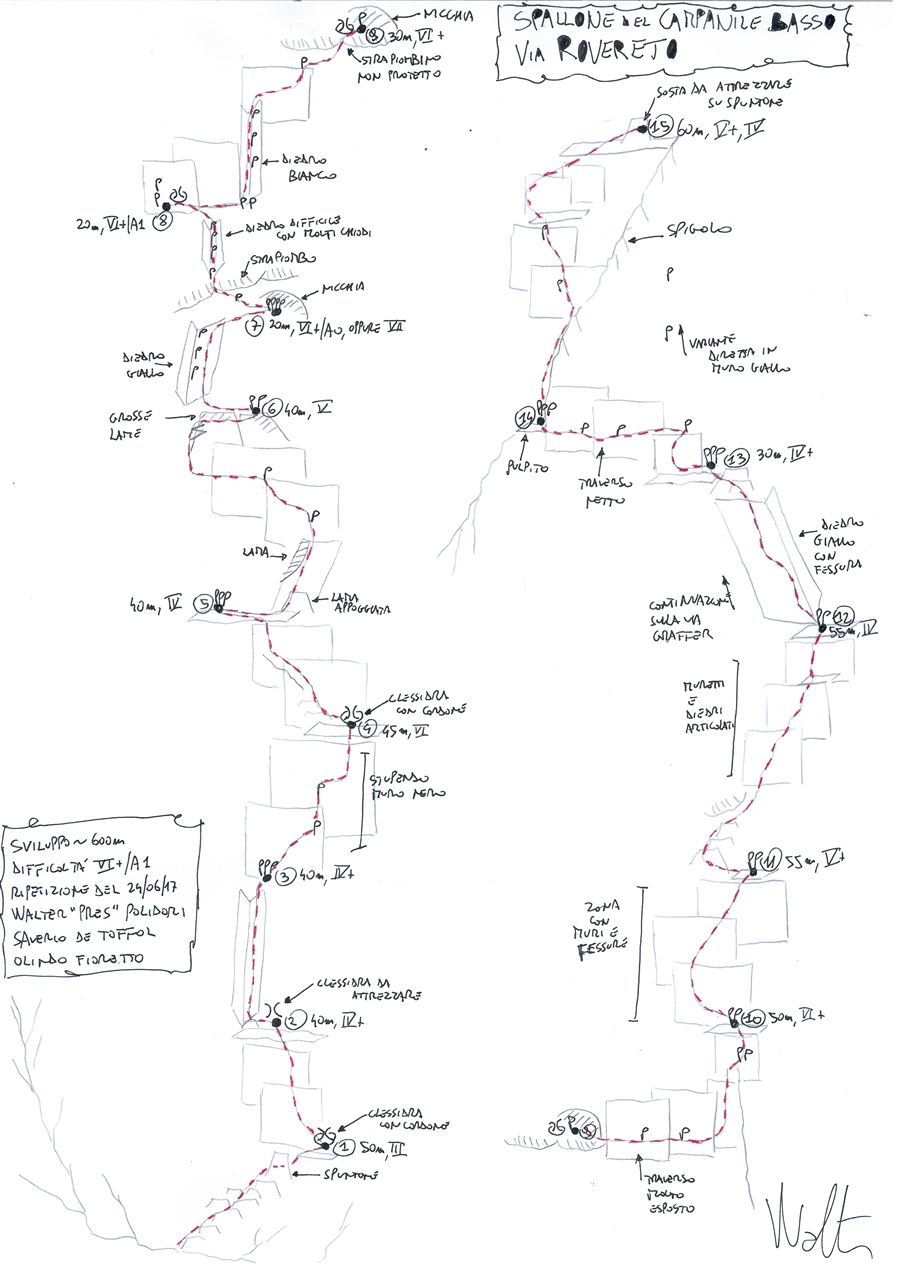 SPALLONE DEL CAMPANILE BASSO
VIA ROVERETO
NICCHIA
9 30m, VI+
STRAPIOMBINO
NON PROTETTO
P
P
P
P
DIEDRO
BIANCO
P
P
PP
20m, VI+/A1 8
DIEDRO DIFFICILE
CON MOLTI CHIODI
P
P
P
P
STRAPIOMBO
P
NICCHIA
PPPP
7 20m, VI+/A0, OPPURE VII
P
P
P
DIEDRO
GIALLO
PP
6 40m, V
GROSSE
LAME
P
P
LAMA
LAMA
APPOGGIATA
PPP
40m, IV 5
CLESSIDRA
CON CORDONE
4 45m, VI
STUPENDO
MURO NERO
P
P
PPP
3 40m, IV+
SVILUPPO ~ 600m
DIFFICOLTÀ VI+/A1
RIPETIZIONE DEL 24/06/17
WALTER "PRES" POLIDORI
SAVERIO DE TOFFOL
OLINDO FIORETTO
CLESSIDRA DA
ATTREZZARE
2 40m, IV+
CLESSIDRA
CON CORDONE
1 50m, III
SPUNTONE
SOSTA DA ATTREZZARE
SU SPUNTONE
15 60m, V+, IV
SPIGOLO
P
P
P
P
VARIANTE
DIRETTA IN
MURO GIALLO
14 PPP
P P P
PULPITO
TRAVERSO
NETTO
PPP
13 30m, IV+
DIEDRO
GIALLO
CON
FESSURA
CONTINUAZIONE
SULLA VIA
GRAFFER
PP 12
55m, IV
MURETTI
E
DIEDRI
ARTICOLATI
PP
11 55m, V+
ZONA
CON
MURI E
FESSURE
PP
10 50m, VI+
PP
P
9
P P
TRAVERSO
MOLTO
ESPOSTO
Walt